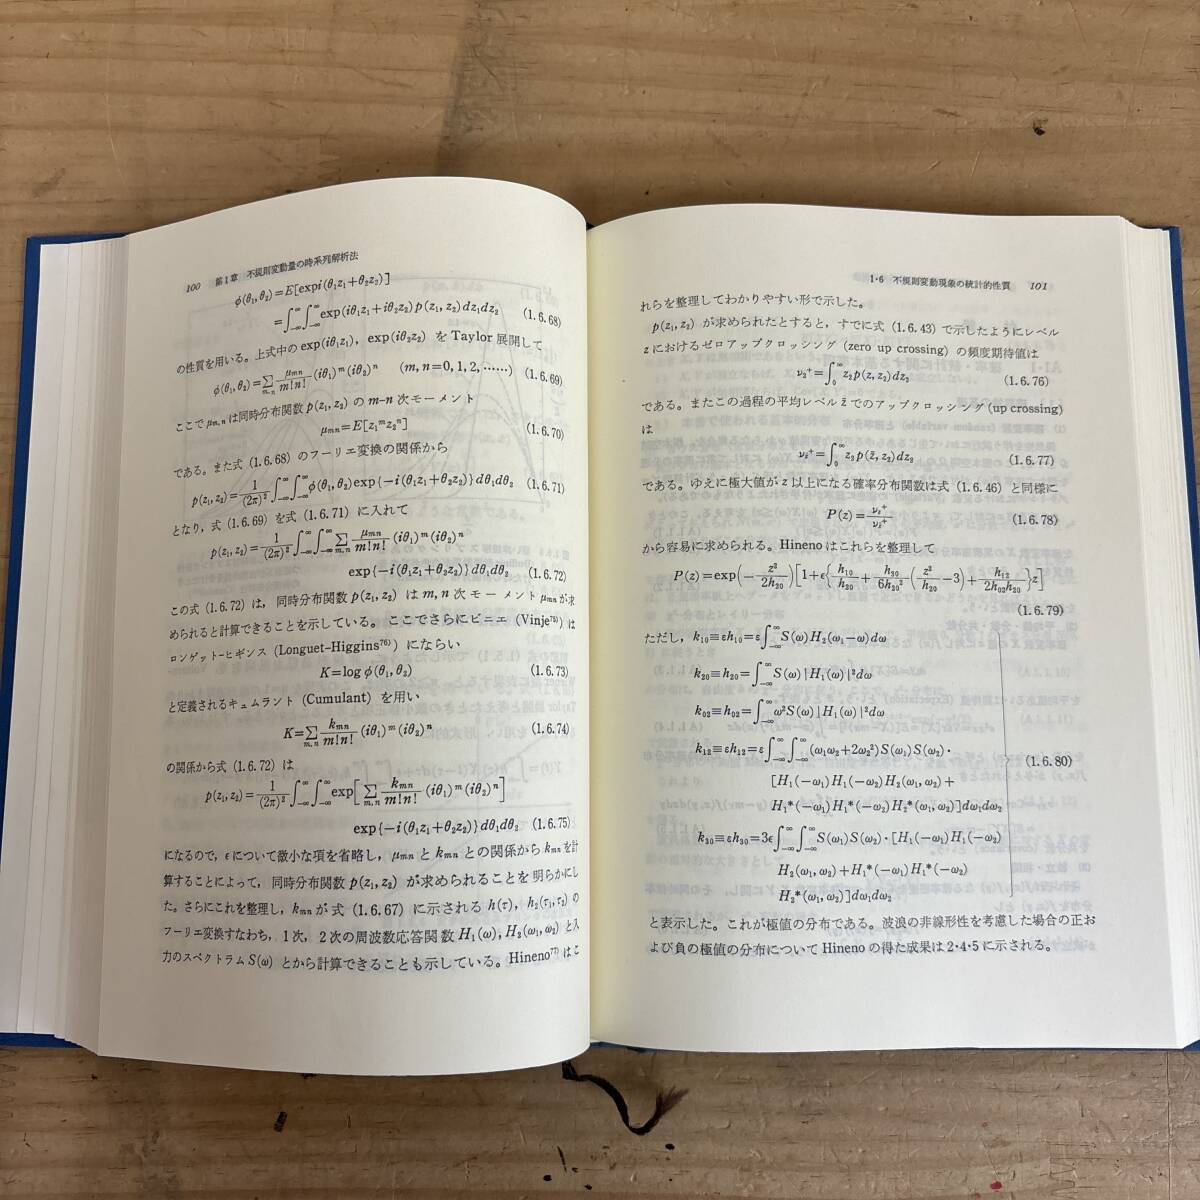 100 第1章 不規則変動量の時系列解析法
φ(θ₁,θ₂)=E[expi(θ₁z₁+θ₂z₂)]
=∫₋∞^∞∫₋∞^∞exp(iθ₁z₁+iθ₂z₂)p(z₁,z₂)dz₁dz₂ (1.6.68)
の性質を用いる。上式中の exp(iθ₁z₁), exp(iθ₂z₂) を Taylor 展開して
φ(θ₁,θ₂)=Σ_{m,n} μ_{mn}/m!n! (iθ₁)^m(iθ₂)^n (m,n=0,1,2,……) (1.6.69)
ここで μ_{m,n} は同時分布関数 p(z₁,z₂) の m−n 次モーメント
μ_{mn}=E[z₁^m z₂^n] (1.6.70)
である。また式 (1.6.68) のフーリエ変換の関係から
p(z₁,z₂)=1/(2π)² ∫₋∞^∞∫₋∞^∞φ(θ₁,θ₂)exp{−i(θ₁z₁+θ₂z₂)}dθ₁dθ₂ (1.6.71)
となり,式 (1.6.69) を式 (1.6.71) に入れて
p(z₁,z₂)=1/(2π)² ∫₋∞^∞∫₋∞^∞ Σ_{m,n} μ_{mn}/m!n! (iθ₁)^m(iθ₂)^n
exp{−i(θ₁z₁+θ₂z₂)}dθ₁dθ₂ (1.6.72)
この式 (1.6.72) は,同時分布関数 p(z₁,z₂) は m,n 次モーメント μ_{mn} が求
められると計算できることを示している。ここでさらにビニエ (Vinje⁷⁵⁾) は
ロンゲット−ヒギンス (Longuet–Higgins⁷⁶⁾) にならい
K=log φ(θ₁,θ₂) (1.6.73)
と定義されるキュムラント (Cumulant) を用い
K=Σ_{m,n} k_{mn}/m!n! (iθ₁)^m(iθ₂)^n (1.6.74)
の関係から式 (1.6.72) は
p(z₁,z₂)=1/(2π)² ∫₋∞^∞∫₋∞^∞exp[Σ_{m,n} k_{mn}/m!n! (iθ₁)^m(iθ₂)^n]
exp{−i(θ₁z₁+θ₂z₂)}dθ₁dθ₂ (1.6.75)
になるので,ϵ について微小な項を省略し,μ_{mn} と k_{mn} との関係から k_{mn} を計
算することによって,同時分布関数 p(z₁,z₂) が求められることを明らかにし
た。さらにこれを整理し,k_{mn} が式 (1.6.67) に示される h(τ), h₂(τ₁,τ₂) の
フーリエ変換すなわち,1次,2次の周波数応答関数 H₁(ω), H₂(ω₁,ω₂) と入
力のスペクトラム S(ω) とから計算できることも示している。Hineno⁷⁷⁾ はこ
1・6 不規則変動現象の統計的性質 101
れらを整理してわかりやすい形で示した。
p(z₁,z₂) が求められたとすると,すでに式 (1.6.43) で示したようにレベル
z におけるゼロアップクロッシング (zero up crossing) の頻度期待値は
ν_z⁺=∫₀^∞ z₂p(z,z₂)dz₂ (1.6.76)
である。またこの過程の平均レベル z̄ でのアップクロッシング (up crossing)
は
ν_z̄⁺=∫₀^∞ z₂p(z̄,z₂)dz₂ (1.6.77)
である。ゆえに極大値が z 以上になる確率分布関数は式 (1.6.46) と同様に
P(z)=ν_z⁺/ν_z̄⁺ (1.6.78)
から容易に求められる。Hineno はこれらを整理して
P(z)=exp(−z²/2h₂₀)[1+ϵ{h₁₀/h₂₀+h₃₀/6h₂₀²(z²/h₂₀−3)+h₁₂/2h₀₂h₂₀}z]
(1.6.79)
ただし,k₁₀≡εh₁₀=ε∫₋∞^∞S(ω)H₂(ω₁−ω)dω
k₂₀≡h₂₀=∫₋∞^∞S(ω)|H₁(ω)|²dω
k₀₂≡h₀₂=∫₋∞^∞ω²S(ω)|H₁(ω)|²dω
k₁₂≡εh₁₂=ε∫₋∞^∞∫₋∞^∞(ω₁ω₂+2ω₂²)S(ω₁)S(ω₂)・
[H₁(−ω₁)H₁(−ω₂)H₂(ω₁,ω₂)+ (1.6.80)
H₁*(−ω₁)H₁*(−ω₂)H₂*(ω₁,ω₂)]dω₁dω₂
k₃₀≡εh₃₀=3ϵ∫₋∞^∞∫₋∞^∞S(ω₁)S(ω₂)・[H₁(−ω₁)H₁(−ω₂)
H₂(ω₁,ω₂)+H₁*(−ω₁)H₁*(−ω₂)
H₂*(ω₁,ω₂)]dω₁dω₂
と表示した。これが極値の分布である。波浪の非線形性を考慮した場合の正お
よび負の極値の分布について Hineno の得た成果は 2・4・5 に示される。